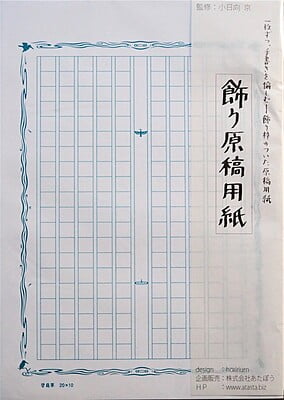 監修：小日向 京
一枚ずつ、手書きを愉しむ！飾り枠のついた原稿用紙
飾り原稿用紙
20×10
design ：
企画販売：株式会社あたぼう
ＨＰ ：